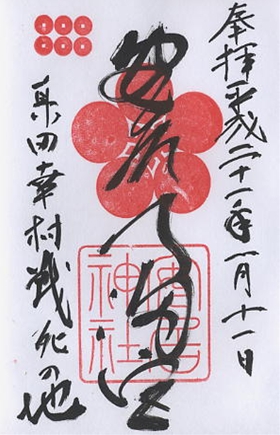 奉拝 平成二十一年一月十一日
安居天満宮
安居神社
真田幸村戦死の地